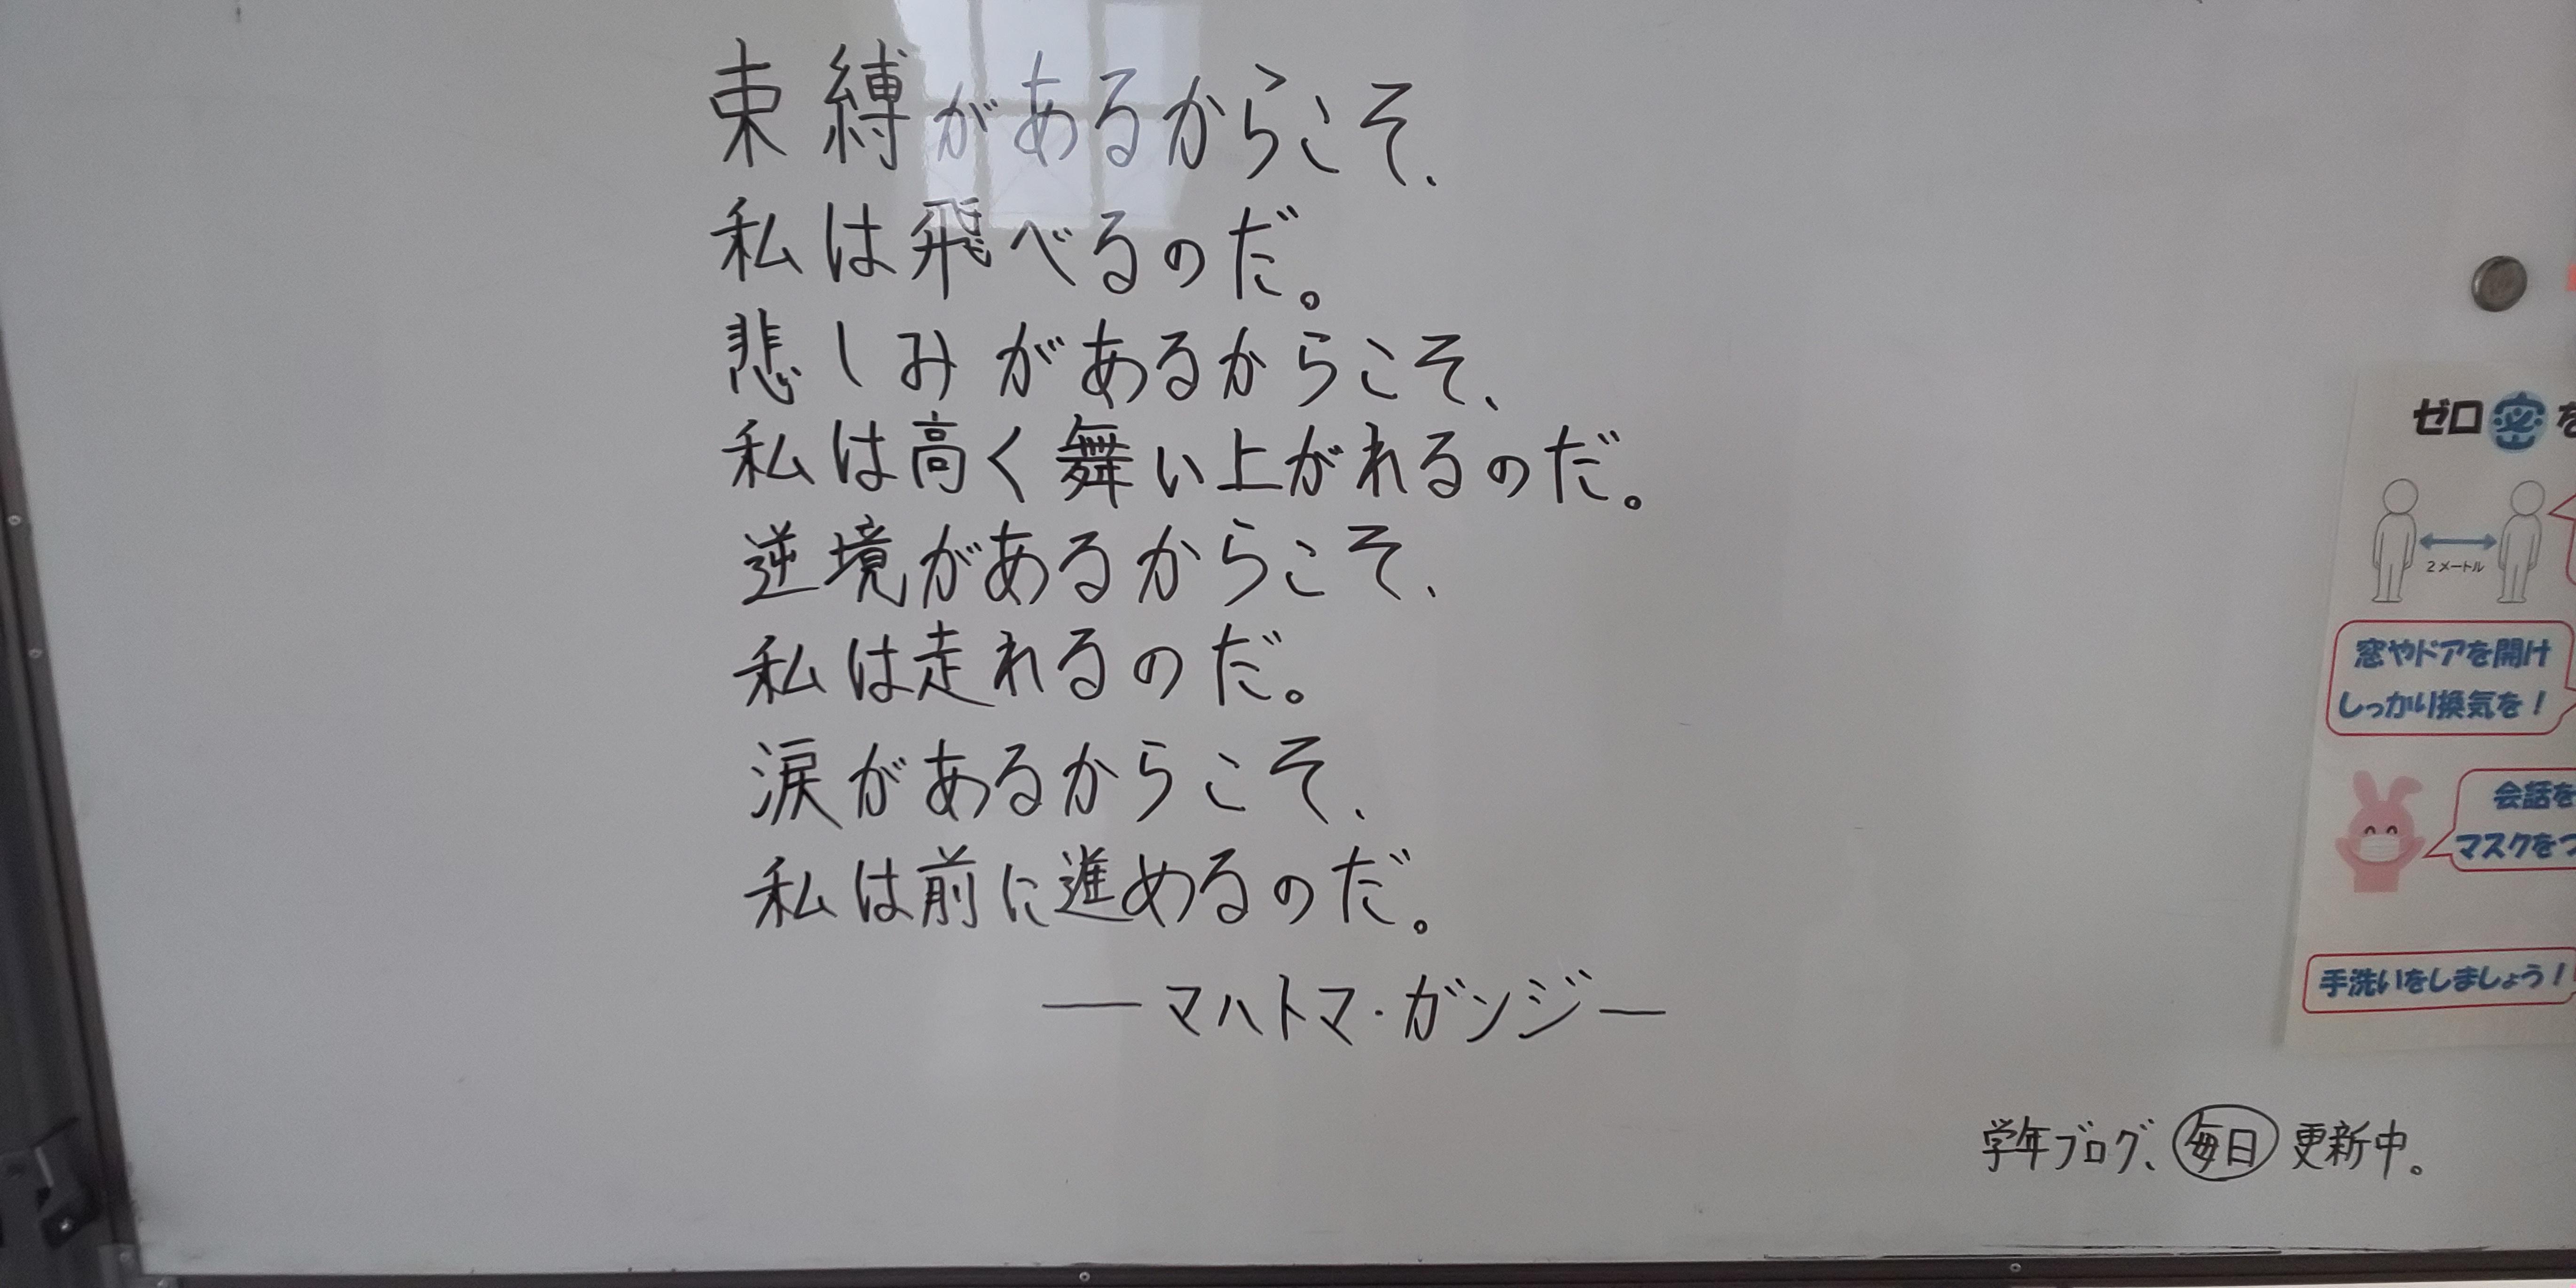 束縛があるからこそ、
私は飛べるのだ。
悲しみがあるからこそ、
私は高く舞い上がれるのだ。
逆境があるからこそ、
私は走れるのだ。
涙があるからこそ、
私は前に進めるのだ。
―マハトマ・ガンジー
学年ブログ、毎日更新中。
ゼロ密を
2メートル
窓やドアを開け
しっかり換気を!
会話を
マスクをつ
手洗いをしましょう!